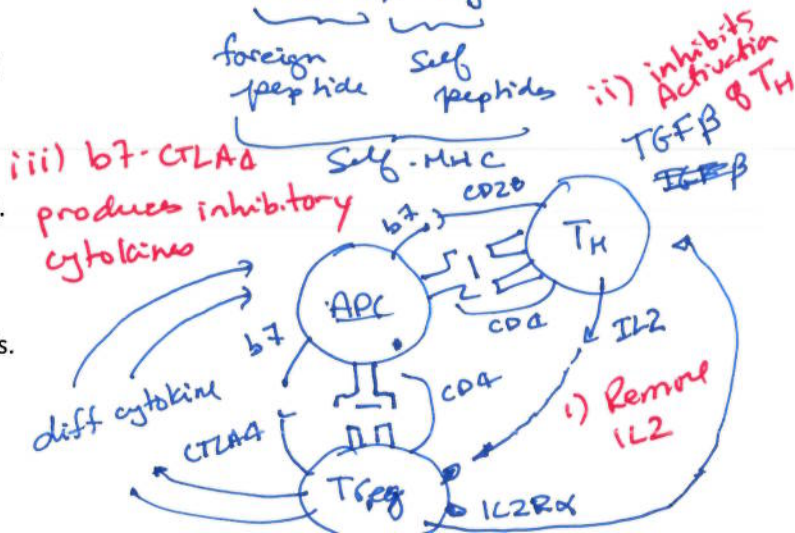 foreign peptide
self peptides
Self-MHC
ii) inhibits
Activation
of TH
TGFβ
iii) b7-CTLA4
produces inhibitory
cytokines
b7
CD28
TH
APC
CD4
IL2
b7
CD4
i) Remove
IL2
diff cytokine
CTLA4
Treg
IL2Rα
s.